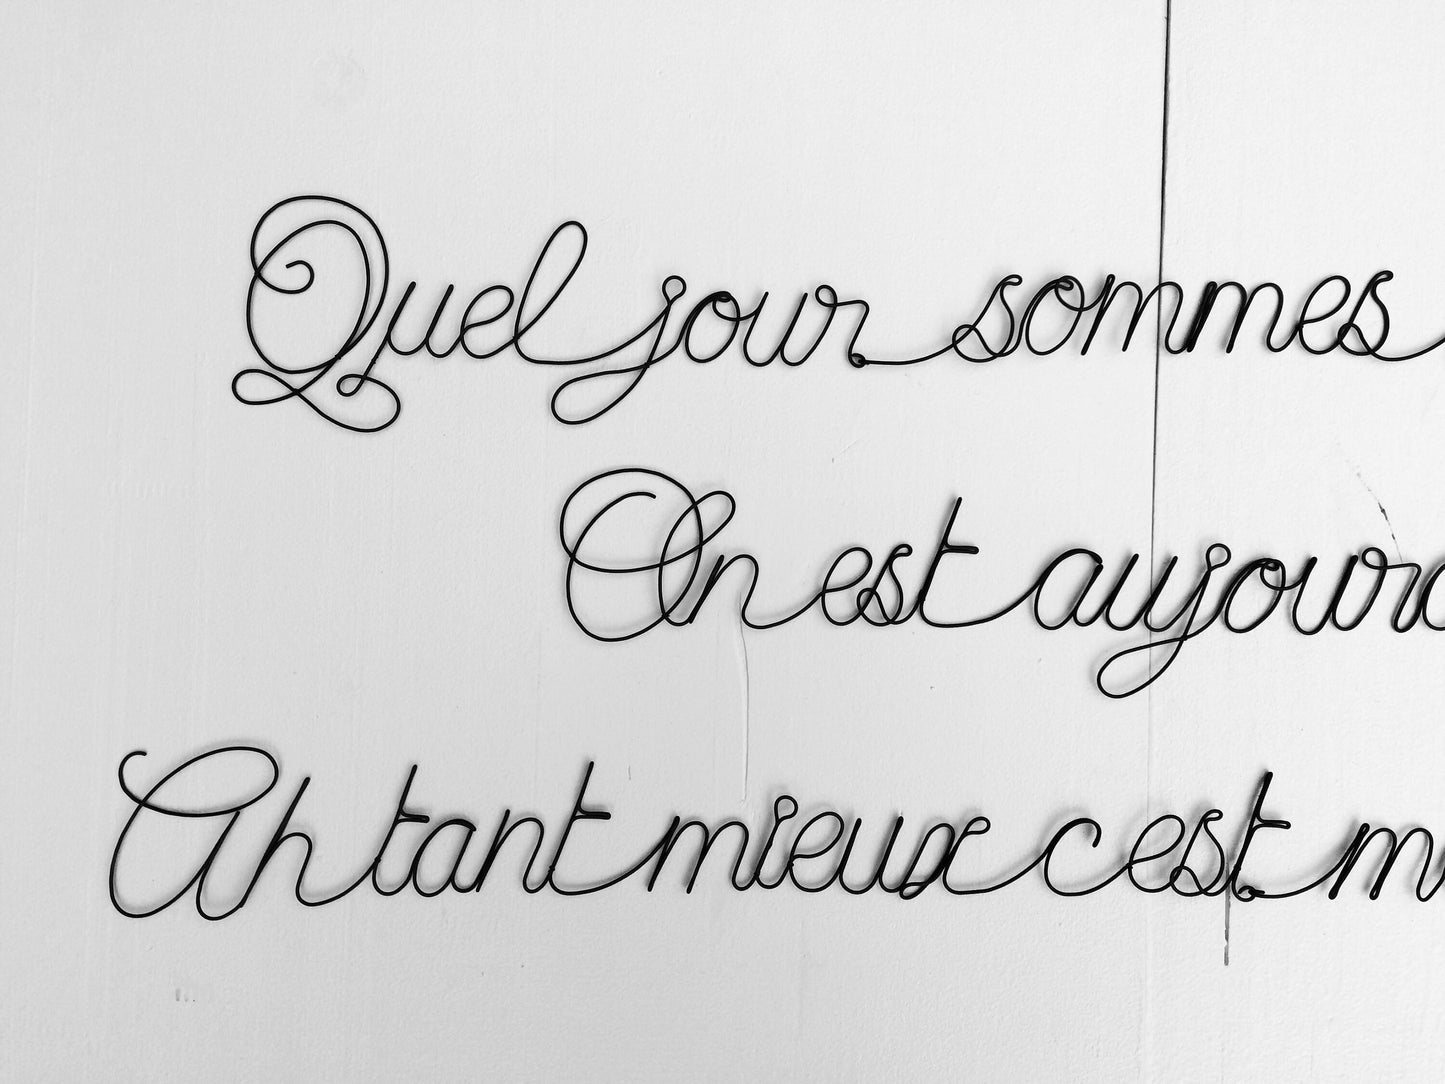 Quel jour sommes
On est aujourd
Ah tant mieux cest m